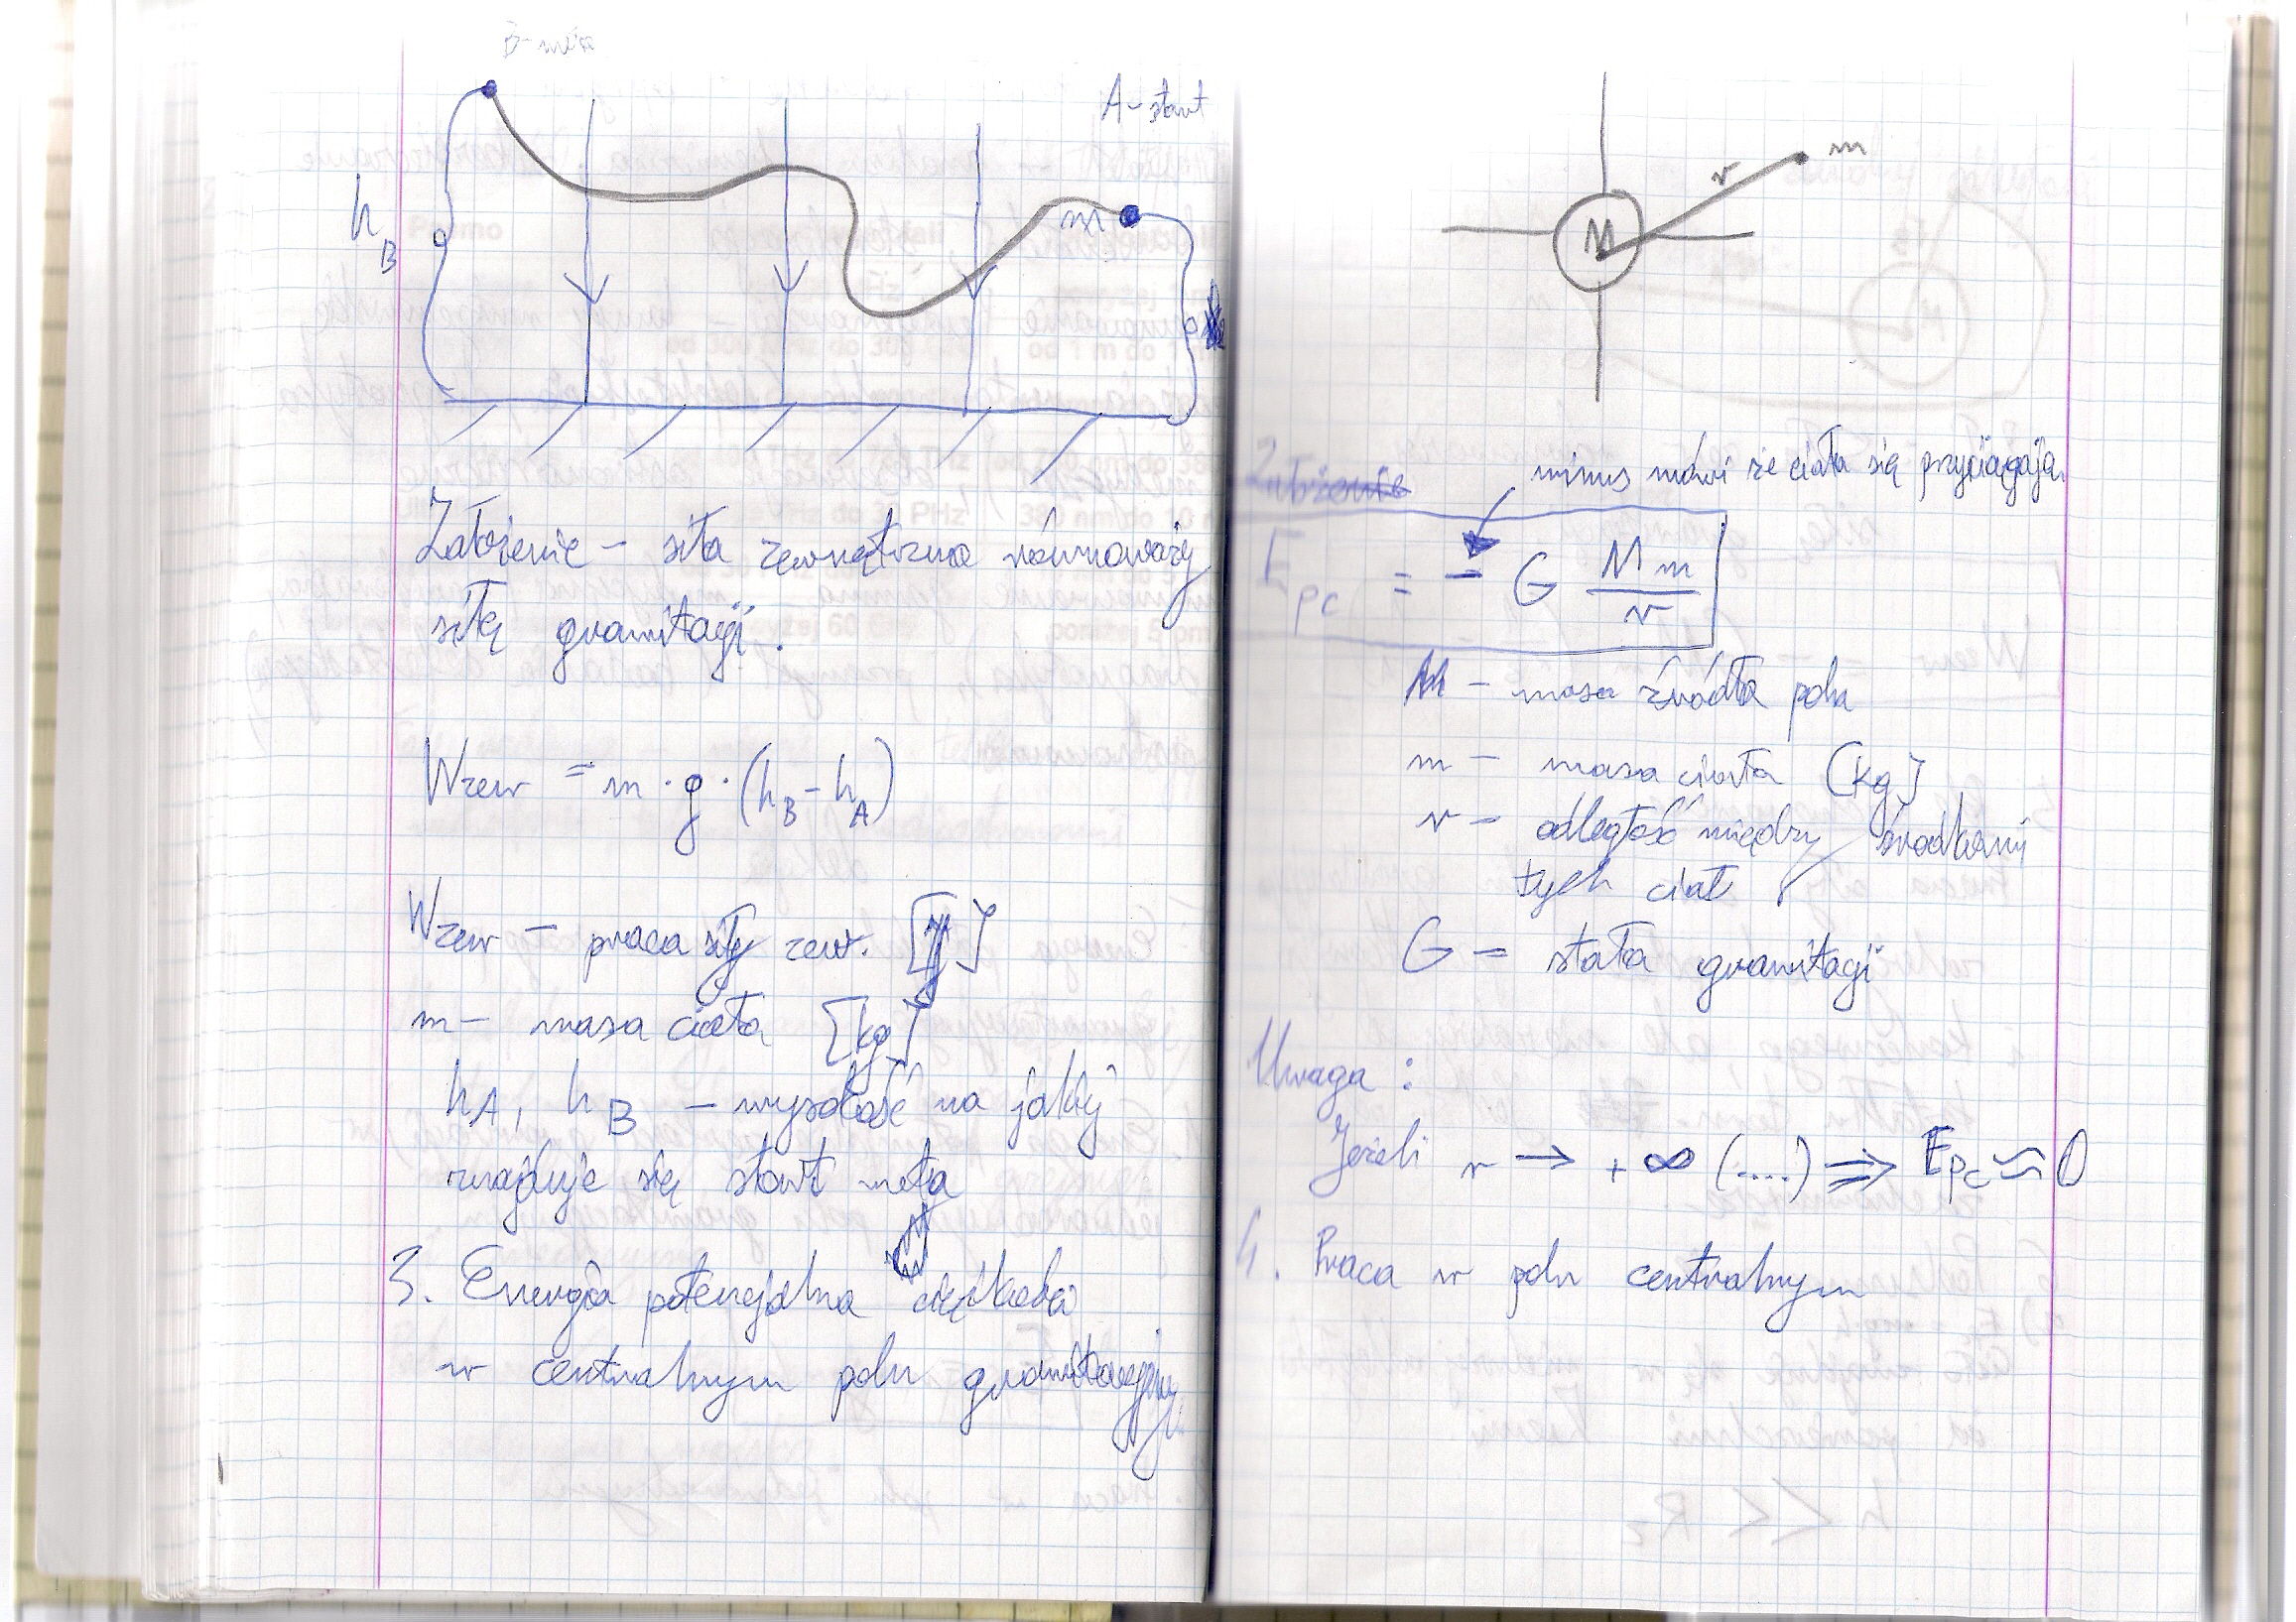 B-meta
A-start
h_B
m
Założenie - siła zewnętrzna równoważy
siłę grawitacji.
Wzew = m · g · (h_B - h_A)
Wzew - praca siły zew. [J]
m - masa ciała [kg]
h_A, h_B - wysokość na jakiej
znajduje się start meta
3. Energia potencjalna ciężkości
w centralnym polu grawitacyjnym
m
r
M
Założenie
minus mówi że ciała się przyciągają
E_pc = - G \frac{Mm}{r}
M - masa źródła pola
m - masa ciała [kg]
r - odległość między środkami
tych ciał
G = stała grawitacji
Uwaga :
Jeżeli r → +∞ (....) ⇒ E_pc ≈ 0
4. Praca w polu centralnym